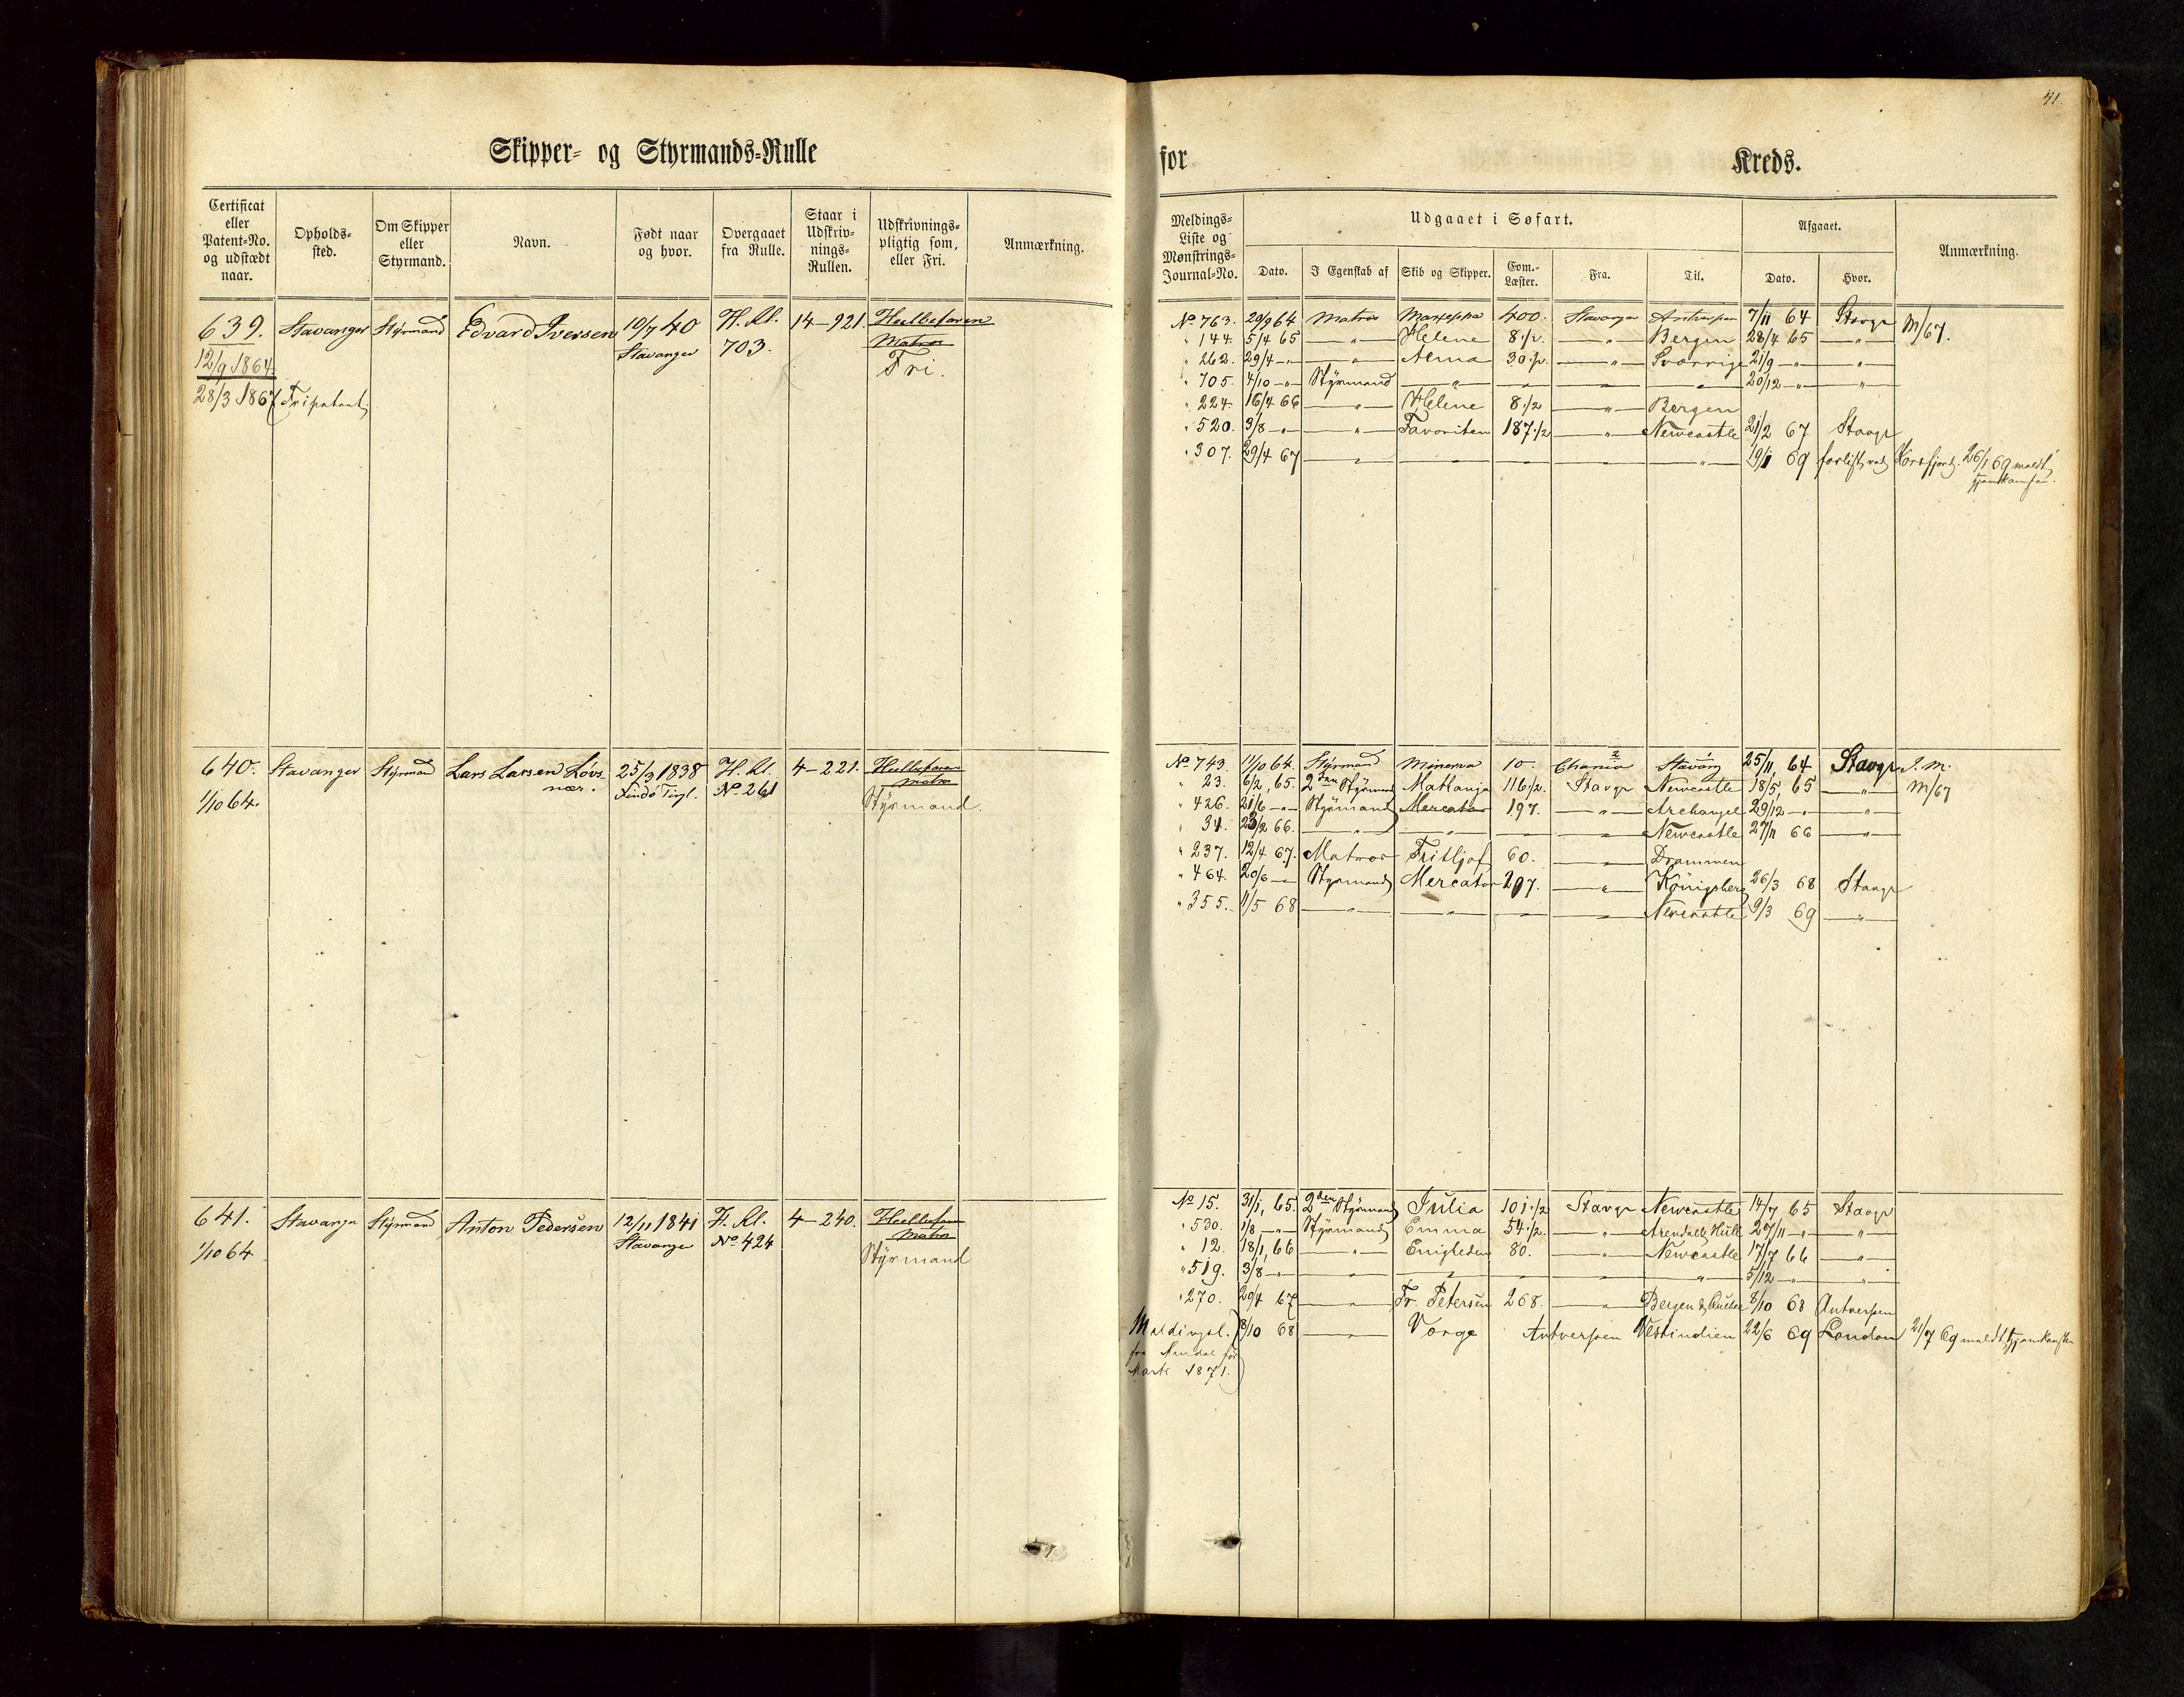 41.
Skipper- og Styrmands-Rulle
for Kreds.
Certificat eller Patent-No. og udstædt naar.
Opholds-sted.
Om Skipper eller Styrmand.
Navn.
Født naar og hvor.
Overgaaet fra Rulle.
Staar i Udskriv-nings-Rullen.
Udskrivnings-pligtig som, eller Fri.
Anmærkning.
Meldings-Liste og Mønstrings-Journal-No.
Udgaaet i Søfart.
Dato.
I Egenskab af
Skib og Skipper.
Com.-Læster.
Fra.
Til.
Afgaaet.
Dato.
Hvor.
Anmærkning.
639. Stavanger Styrmand Edvard Iversen 10/7 40 H. Rl. 14-921. Heelbefaren
Stavanger 703. Matros
12/9 1864. Fri.
28/3 1867 Fripatent
No 763. 29/9 64 Matros Mazeppa 400. Stavanger Antverpen 7/11 64 Stavgr M/67.
" 144. 5/4 65 " Helene 8 1/2 " Bergen 28/4 65 "
" 262. 29/4 " " Alma 30 1/2 " Sverrige 21/9 " "
" 705. 4/10 " Styrmand " " " " 20/12 " "
" 224. 16/4 66 " Helene 8 1/2 " Bergen
" 520. 3/8 " " Favoriten 187 1/2 " Newcastle 21/2 67 Stavgr
" 307. 29/4 67 " " " " " 19/1 69 forlist ved Korsfjord. 26/1 69 meldt
hjemkomsten.
640. Stavanger Styrmand Lars Larsen Løvs- 25/3 1838 H. Rl. 4-221. Heelbefaren
nær. Findø Tingl. No 261 Matros
1/10 64. Styrmand.
No 743. 1/10 64. Styrmand Minerva 10. Chania Stavang 25/11 64 Stavgr I. M.
" 23. 6/2, 65. 2den Styrmand Mathanja 116 1/2. Stavgr Newcastle 18/5, 65 " M/67
" 426. 21/6 " Styrmand Mercator 197. " Archangel 29/12 " "
" 34. 23/2 66. " " " " Newcastle 27/11 66 "
" 237. 12/4 67. Matros Fritljof 60. " Drammen
" 464. 20/6 " Styrmand Mercator 297. " Königsberg 26/3 68 Stavgr
" 355. 1/5 68 " " " " Newcastle 9/3 69 "
641. Stavanger Styrmand Anton Pedersen 12/11 1841 H. Rl. 4-240. Heelbefaren
Stavanger No 424 Matros
1/10 64 Styrmand
No 15. 31/1, 65. 2den Styrmand Julia 101 1/2 Stavgr Newcastle 14/7 65 Stavgr
" 530. 1/8 " Styrmand Emma 54 1/2. " Arendal & Hull 27/11 " "
" 12. 18/1, 66 " Enigheden 80. " Newcastle 17/7 66 "
" 519. 3/8 " " " " " " 5/12 " "
" 270. 29/4 67 " Fr. Petersen 268. " Bergen & Quebec 8/10 68 Antverpen
Meldingsl. 8/10 68 " Norge Antverpen Vestindien 22/6 69 London 21/7 69 meldt hjemkomsten
fra Mandal for
Marts 1871.